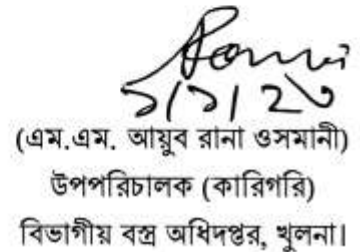 ১/১/২৩
(এম.এম. আয়ুব রানা ওসমানী)
উপপরিচালক (কারিগরি)
বিভাগীয় বস্ত্র অধিদপ্তর, খুলনা।